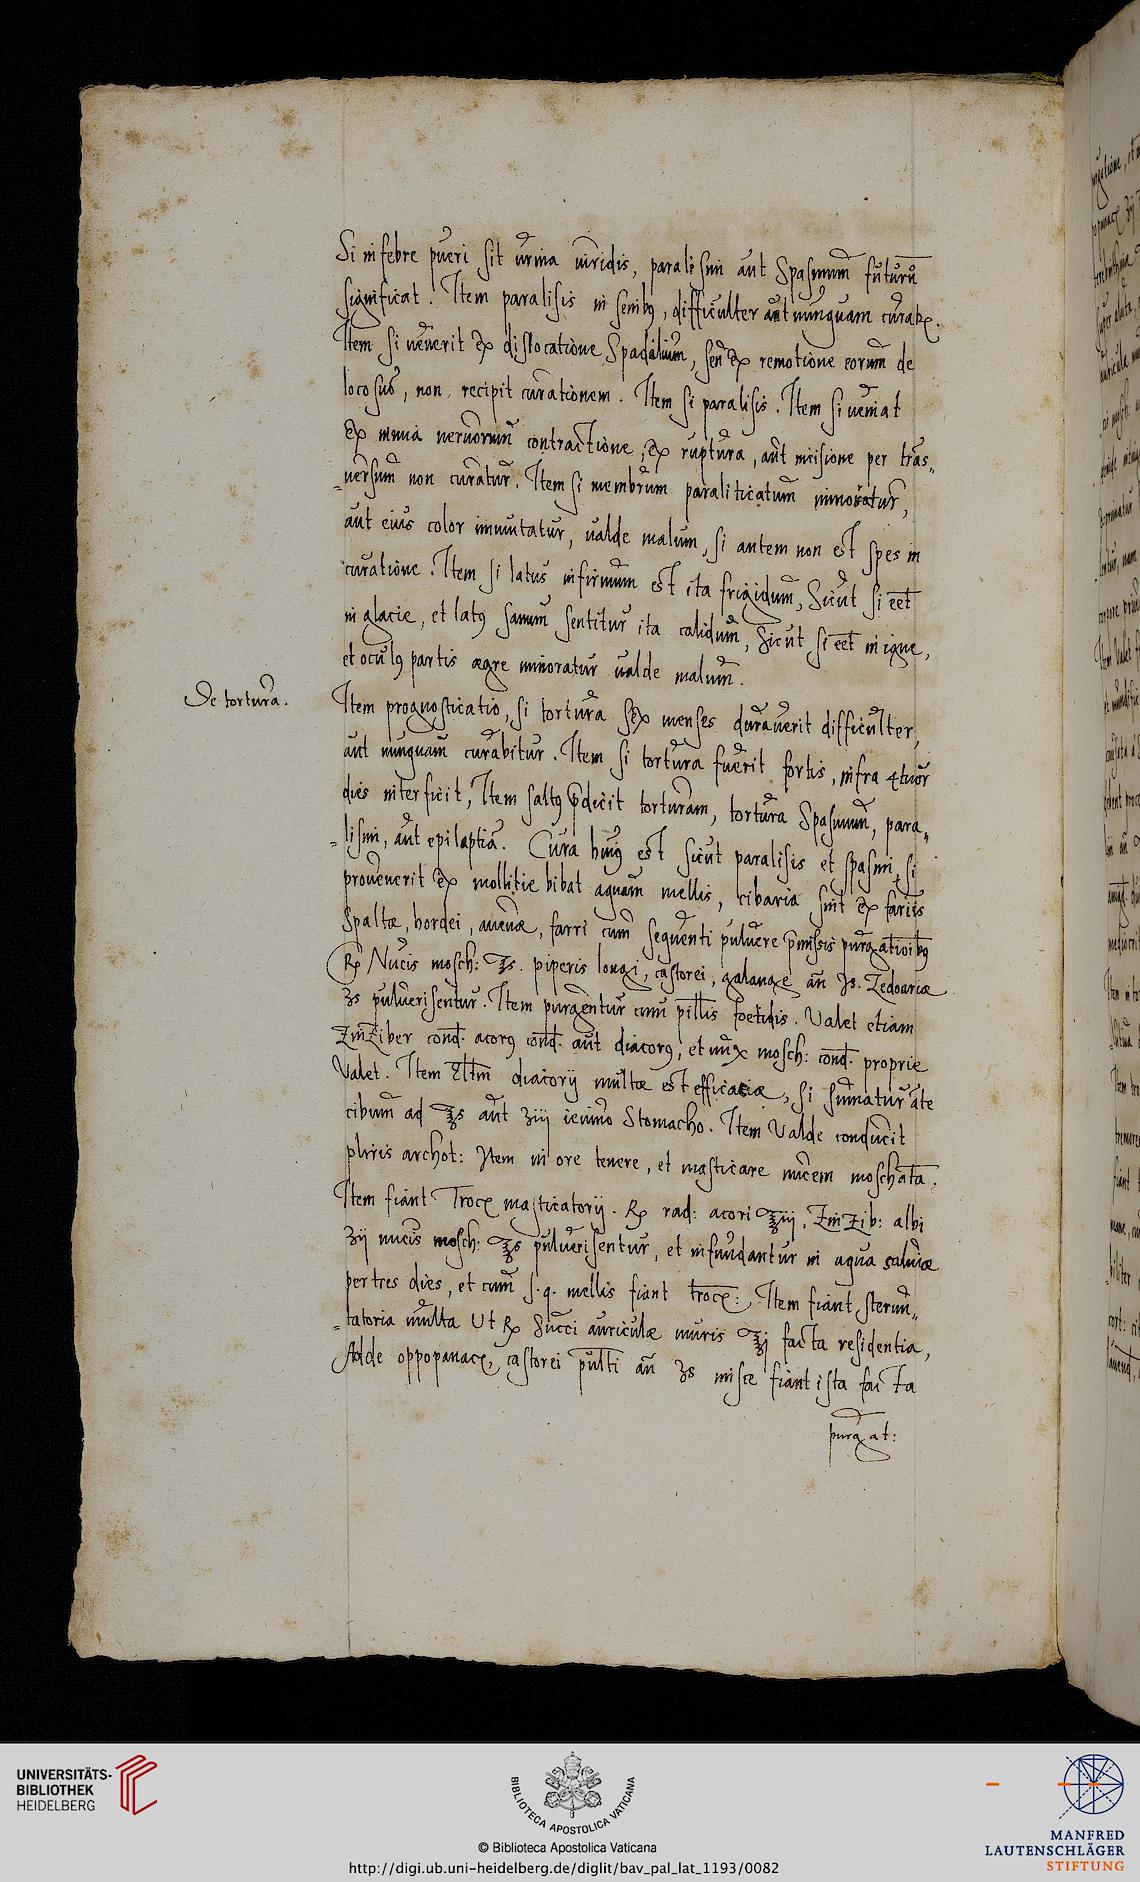 Si in febre pueri sit urina viridis, paralisim aut Spasmum futurū
significat. Item paralisis in senibꝰ, difficulter aut nunquam curatꝛ.
Item si uenerit ex dislocatione Spadilium, seu ex remotione eorum de
loco suo, non recipit curationem. Item si paralisis. Item si ueniat
ex nimia neruorum contractione, ex ruptura, aut incisione per tras„
„uersum non curatur. Item si membrum paraliticatum minoratur,
aut eius color immutatur, ualde malum, si autem non est spes in
curatione. Item si latus infirmum est ita frigidum, Sicut si eēt
in glacie, et latꝰ sanum sentitur ita calidum, Sicut si eēt in igne,
et oculꝰ partis ægre minoratur ualde malum.
De tortura.
Item prognosticatio, si tortura sex menses durauerit difficulter,
aut nunquam curabitur. Item si tortura fuerit fortis, infra 4tuor
dies interficit, Item saltꝰ p̄dicit torturam, tortura Spasmum, para„
„lisim, aut epilaptiā. Cura huiꝰ est sicut paralisis et spasmi, si
prouenerit ex mollitie bibat aquam mellis, cibaria sint ex fariīs
Spaltæ, hordei, auenæ, farri cum sequenti puluere p̄missis purgatioībꝰ
℞ Nucis mosch: ℥s. piperis longi, castorei, galangæ añ ʒs. Zedoariæ
ʒs puluerisentur. Item purgentur cum pillis foetidis. Valet etiam
Zinziber cond. acorꝰ cond. aut diacorꝰ, et nux mosch: cond. proprie
Valet. Item Eltm̄ diacorij multæ est efficaciæ, si sumatur ante
cibum ad ℥s aut ʒiij ieiuno Stomacho. Item Valde conducit
pliris archot: Item in ore tenere, et masticare nucem moschatā.
Item fiant Trocx masticatorij. ℞ rad: acori ℥iij, Zinzib: albi
ʒij nucis mosch: ℥s puluerisentur, et infundantur in aqua saluiæ
per tres dies, et cum s. q. mellis fiant trocx: Item fiant sternu„
„tatoria multa Ut ℞ Succi auriculæ muris ℥j facta residentia,
Adde oppopanacx, castorei pulti añ ʒs misce fiant ista facta
purgat:
UNIVERSITÄTS-
BIBLIOTHEK
HEIDELBERG
BIBLIOTECA APOSTOLICA VATICANA
© Biblioteca Apostolica Vaticana
http://digi.ub.uni-heidelberg.de/diglit/bav_pal_lat_1193/0082
MANFRED
LAUTENSCHLÄGER
STIFTUNG